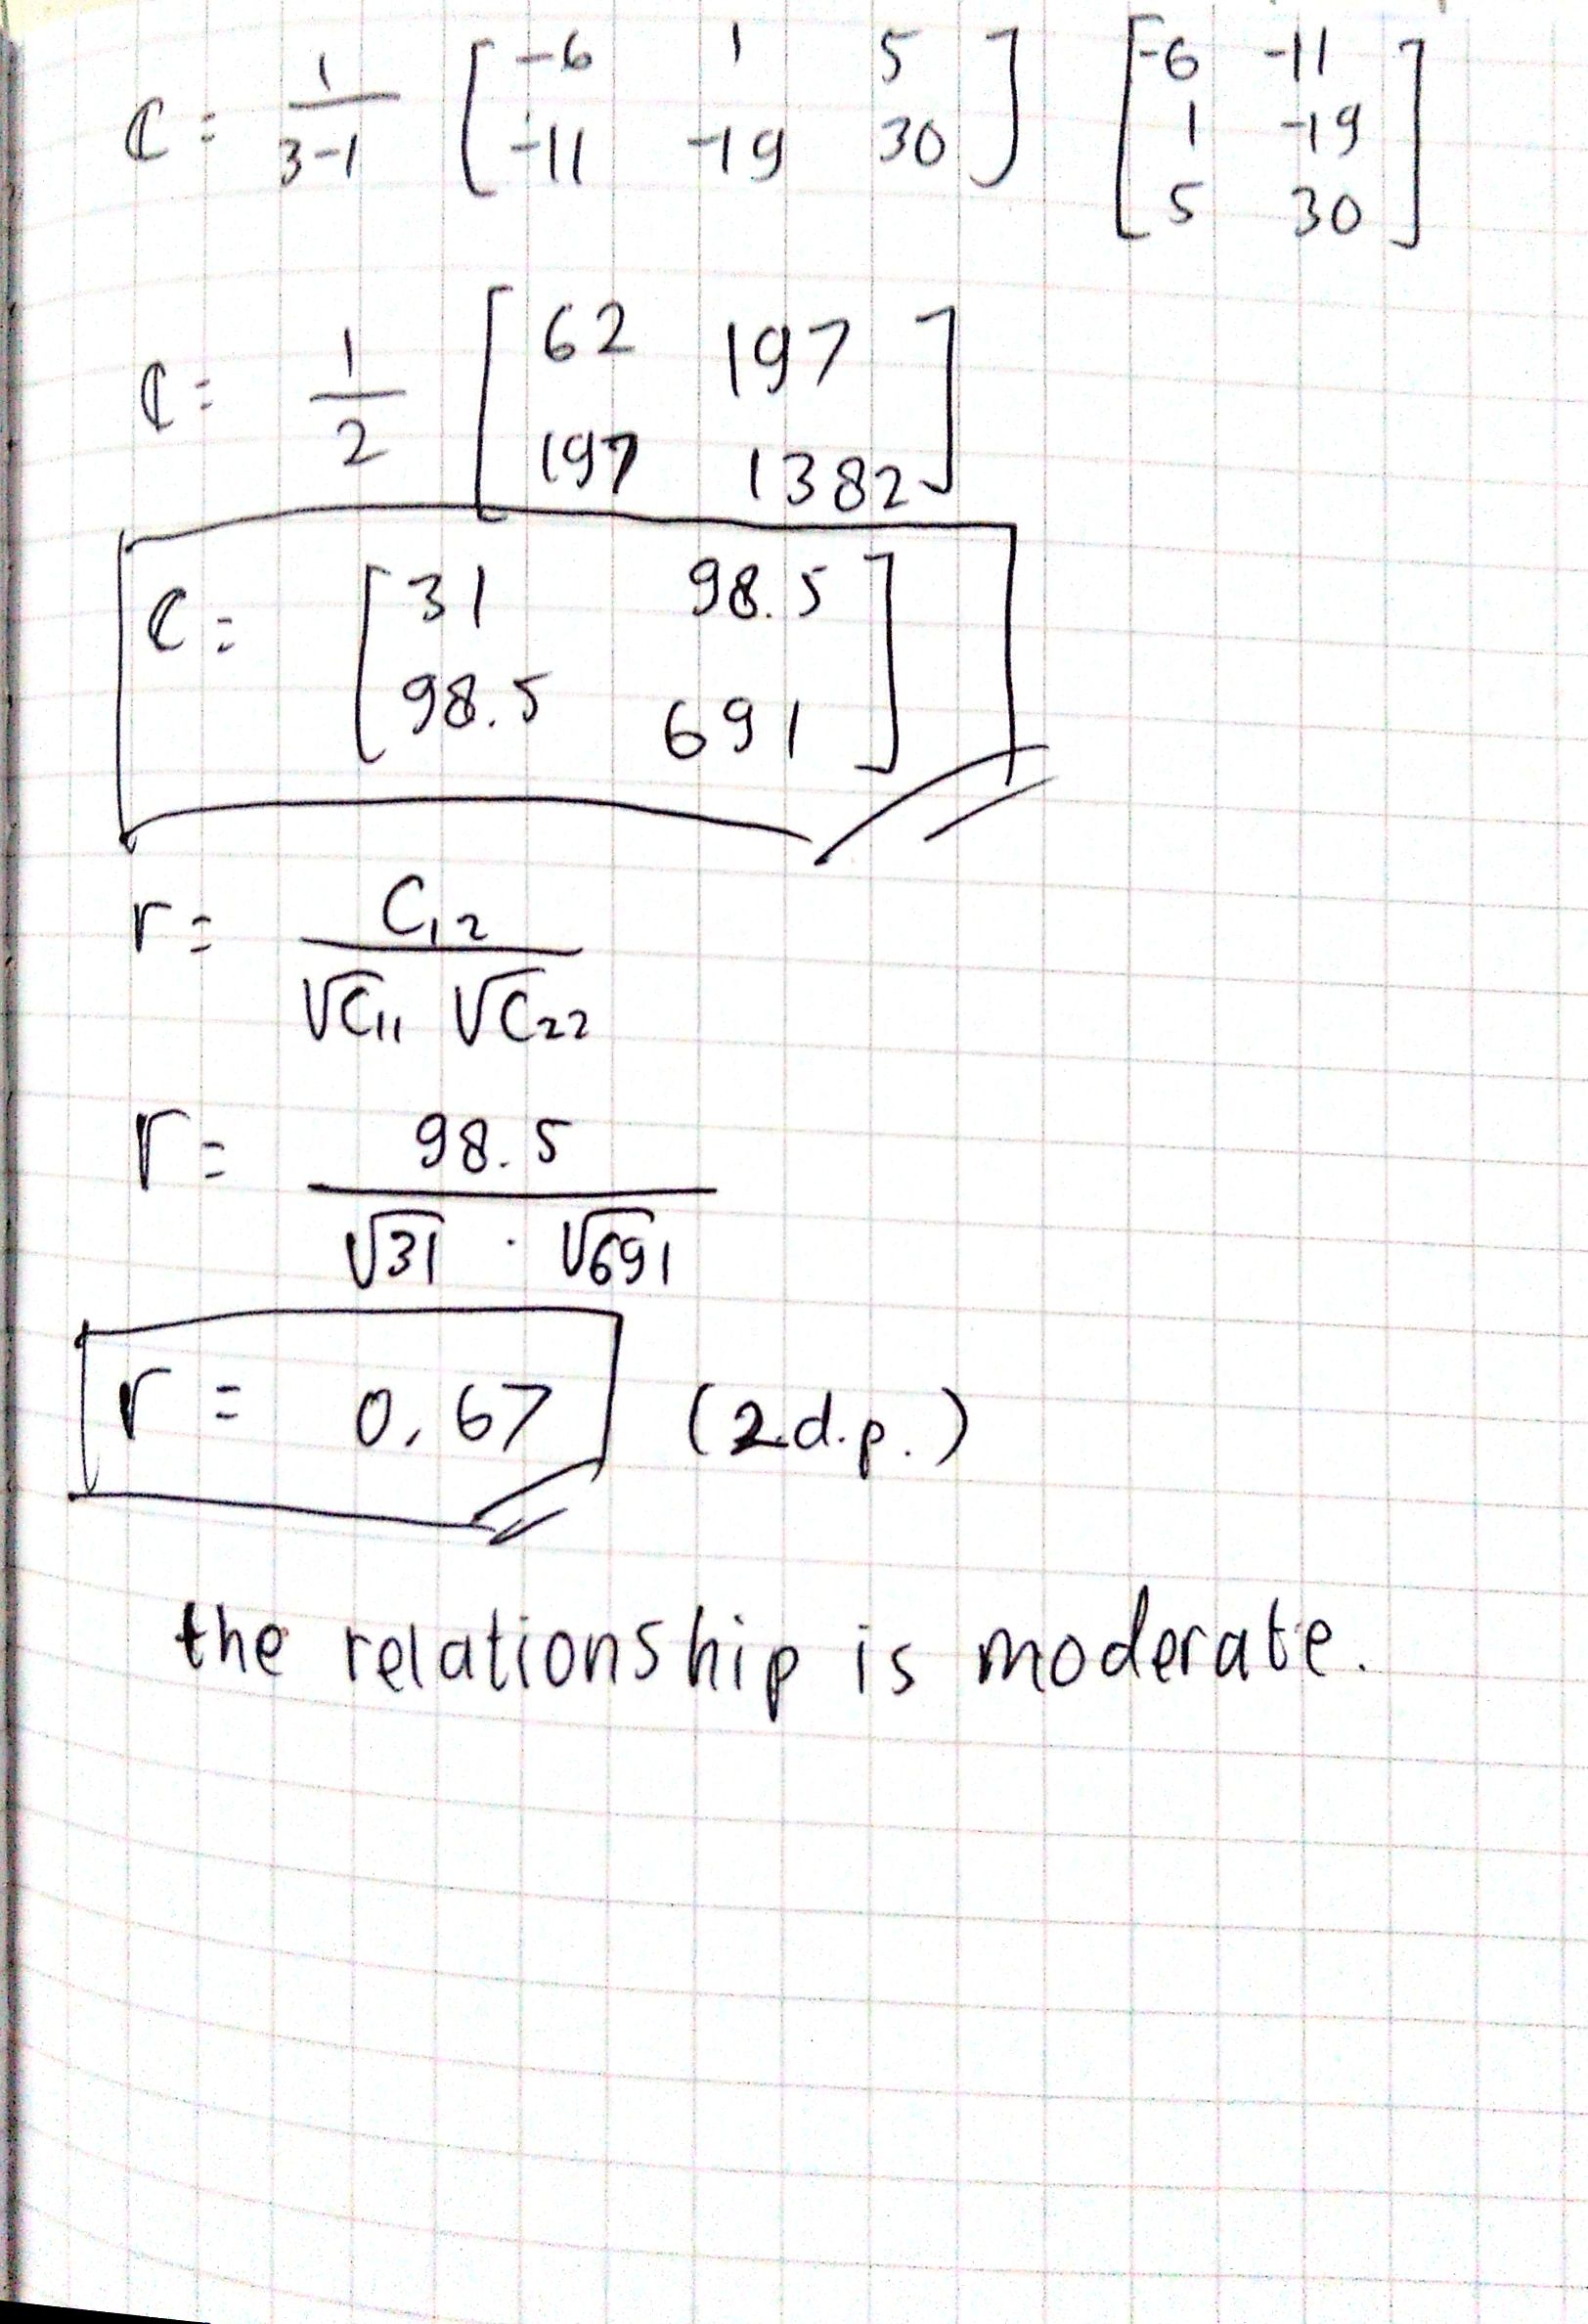 C = 1/(3-1) [ -6 1 5 ; -11 -19 30 ] [ -6 -11 ; 1 -19 ; 5 30 ]
C = 1/2 [ 62 197 ; 197 1382 ]
C = [ 31 98.5 ; 98.5 691 ]
r = C₁₂ / (√C₁₁ √C₂₂)
r = 98.5 / (√31 · √691)
r = 0.67 (2d.p.)
the relationship is moderate.